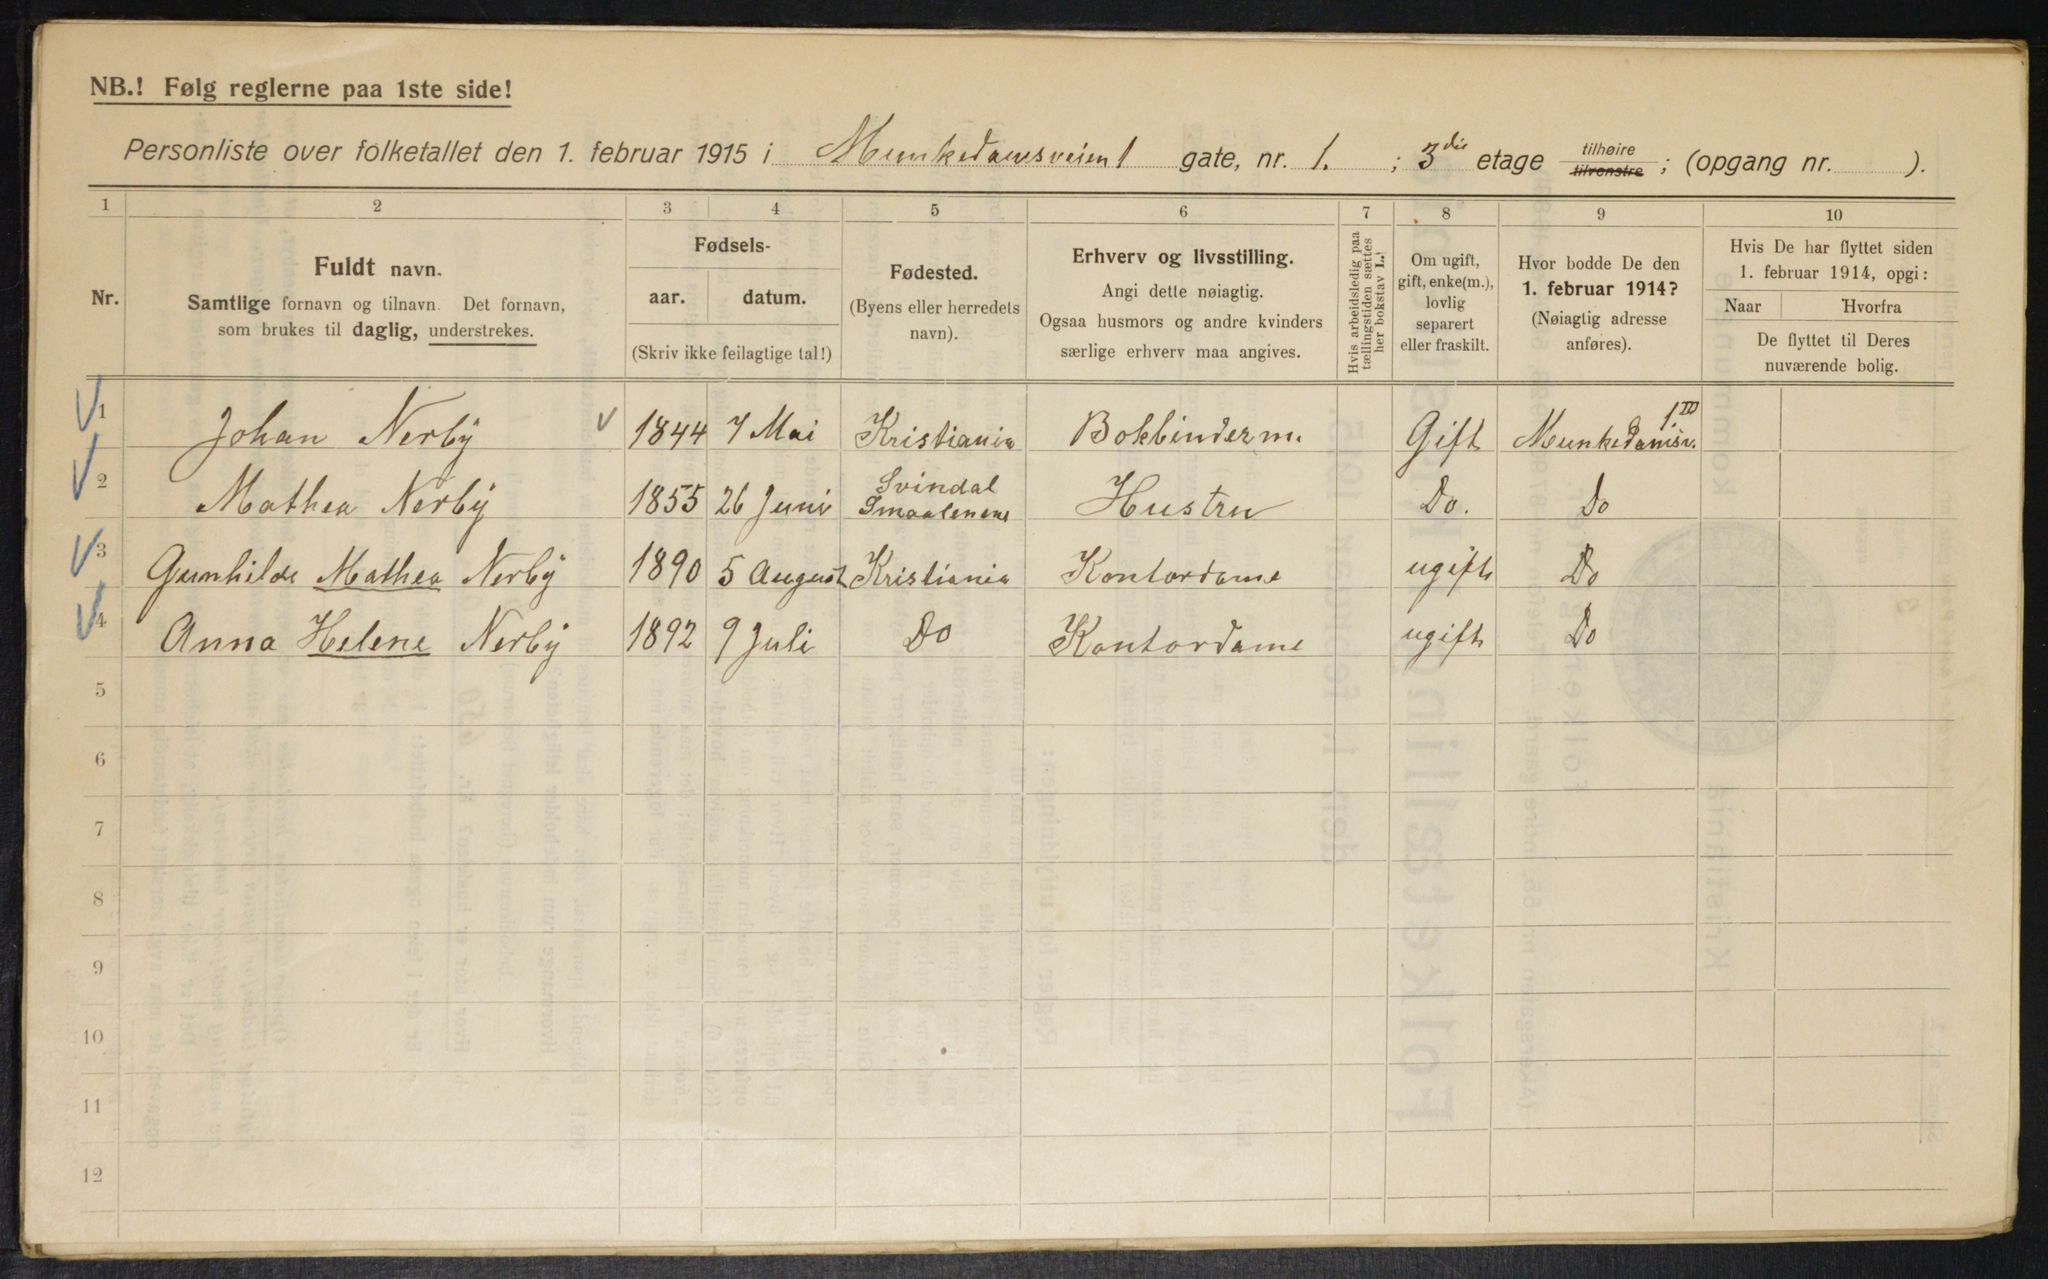 NB.! Følg reglerne paa 1ste side!
Personliste over folketallet den 1. februar 1915 i Munkedamsveien 1 gate, nr. 1. ; 3die etage tilhøire tilvenstre ; (opgang nr. ).
1 2 3 4 5 6 7 8 9 10
Nr.
Fuldt navn.
Samtlige fornavn og tilnavn. Det fornavn,
som brukes til daglig, understrekes.
Fødsels-
aar. datum.
(Skriv ikke feilagtige tal!)
Fødested.
(Byens eller herredets
navn).
Erhverv og livsstilling.
Angi dette nøiagtig.
Ogsaa husmors og andre kvinders
særlige erhverv maa angives.
Hvis arbeidsledig paa
tællingstiden sættes
her bokstav L.
Om ugift,
gift, enke(m.),
lovlig
separert
eller fraskilt.
Hvor bodde De den
1. februar 1914?
(Nøiagtig adresse
anføres).
Hvis De har flyttet siden
1. februar 1914, opgi:
Naar Hvorfra
De flyttet til Deres
nuværende bolig.
1 Johan Nerby 1844 7 Mai Kristiania Bokbinderm. Gift Munkedamsv. 1 III
2 Mathea Nerby 1855 26 Juni Svindal Smaalenene Hustru Do. Do
3 Gunhilde Mathea Nerby 1890 5 August Kristiania Kontordame ugift Do
4 Anna Helene Nerby 1892 9 Juli Do Kontordame ugift Do
5
6
7
8
9
10
11
12